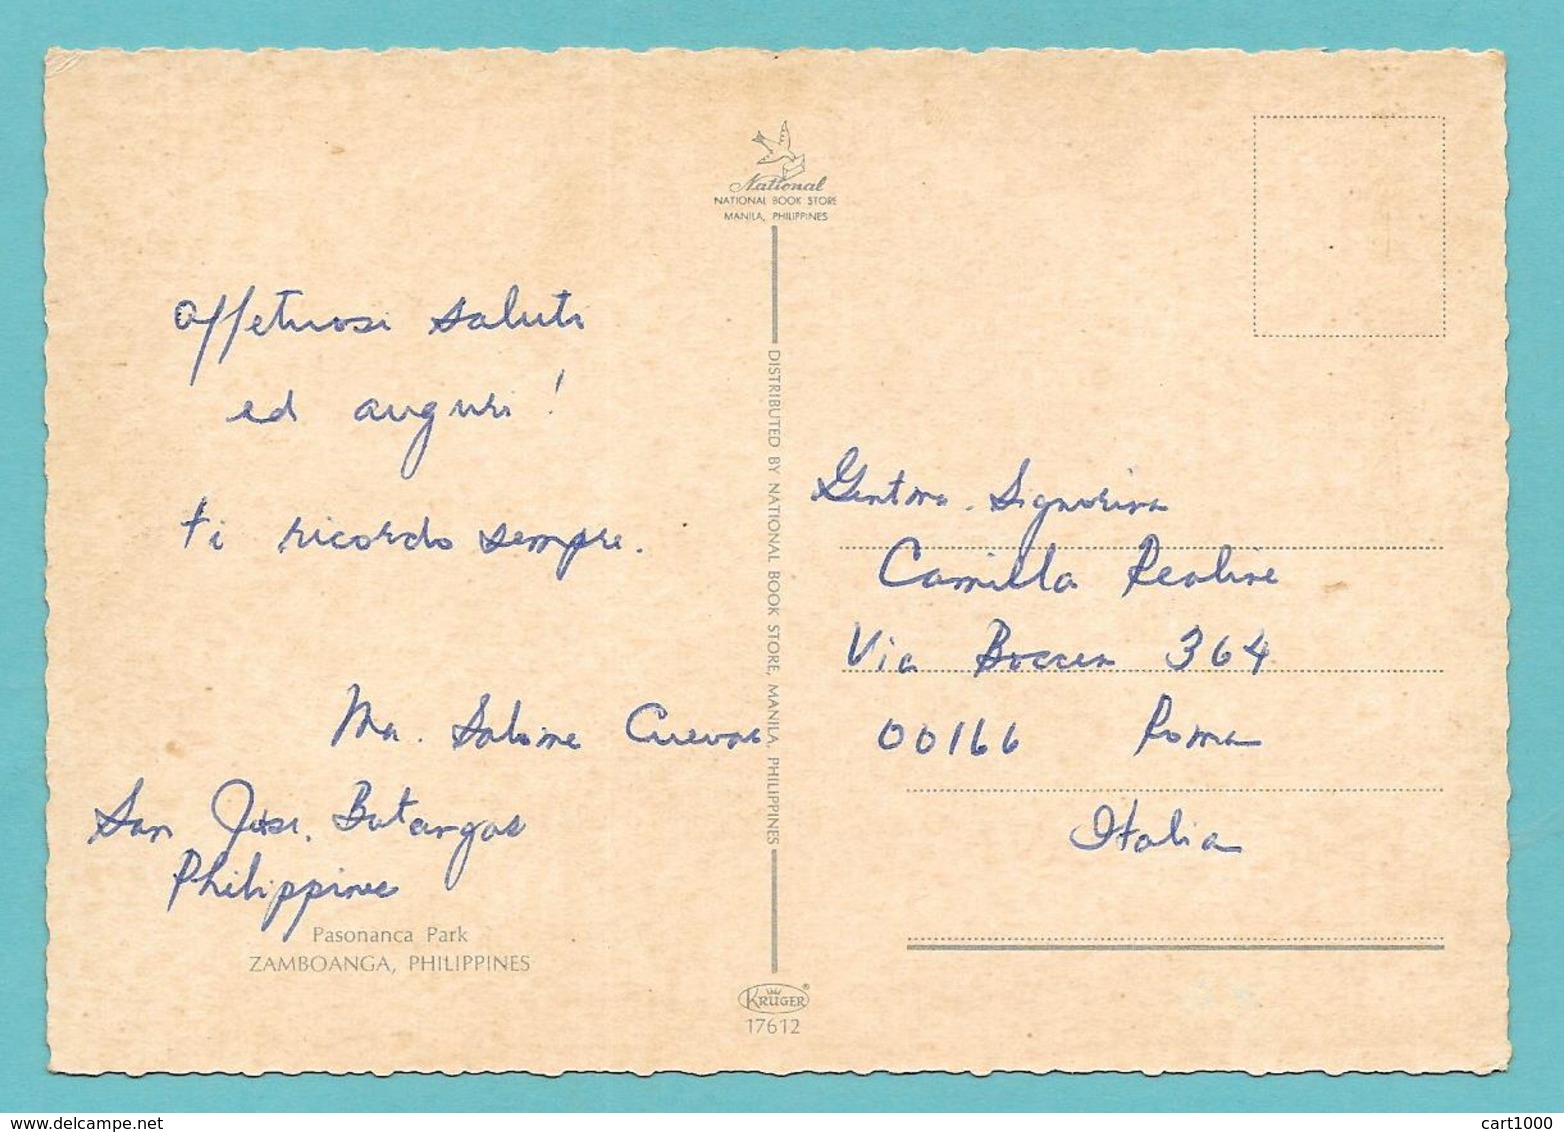 National
NATIONAL BOOK STORE
MANILA, PHILIPPINES
affetuosi saluti
ed auguri!
ti ricordo sempre.
Ma. Salome Cuevas
San Jose, Batangas
Philippines
Pasonanca Park
ZAMBOANGA, PHILIPPINES
DISTRIBUTED BY NATIONAL BOOK STORE, MANILA, PHILIPPINES
KRÜGER®
17612
Signorina
Camilla
Via Boccea 364
00166 Roma
Italia
www.delcampe.net
cart1000